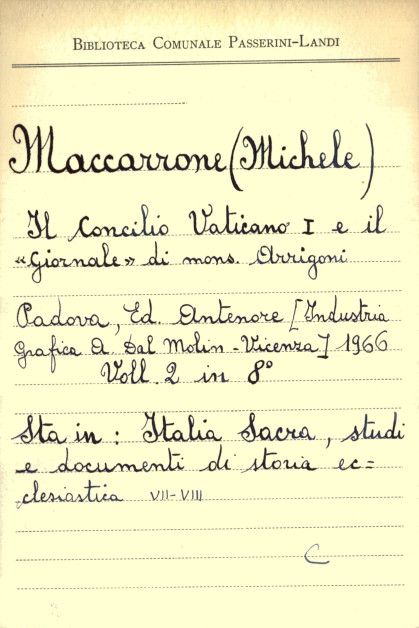 BIBLIOTECA COMUNALE PASSERINI-LANDI
Maccarrone (Michele)
Il Concilio Vaticano I e il
«Giornale» di mons. Arrigoni
Padova, Ed. Antenore [Industria
Grafica A. Dal Molin - Vicenza] 1966
Voll. 2 in 8°
Sta in: Italia Sacra, studi
e documenti di storia ec=
clesiastica VII-VIII
C